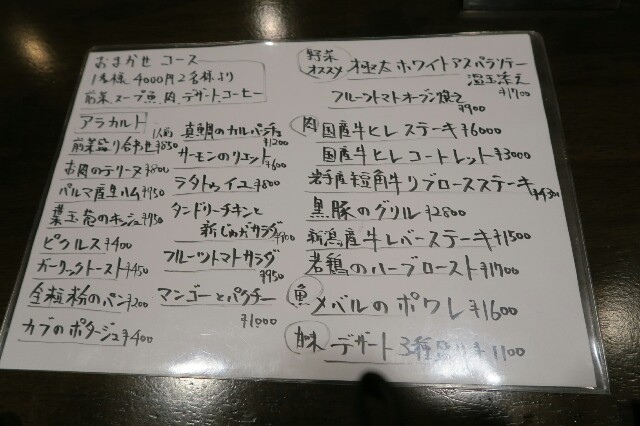 おまかせ コース
1名様 4000円 2名様より
前菜、スープ、魚、肉、デザート、コーヒー
アラカルト
1人前
前菜盛り合わせ ¥850
お肉のテリーヌ ¥800
パルマ産生ハム ¥950
葉玉ねぎのキッシュ ¥950
ピクルス ¥400
ガーリックトースト ¥450
全粒粉のパン ¥200
カブのポタージュ ¥400
真鯛のカルパッチョ
¥1200
サーモンのリエット
¥600
ラタトゥイユ ¥800
タンドリーチキンと
新じゃがサラダ
フルーツトマトサラダ
¥950
マンゴーとパクチー
¥1000
野菜
オススメ
極太ホワイトアスパラソテー
温玉添え
¥1700
フルーツトマトオーブン焼き
¥900
肉
国産牛ヒレステーキ ¥6000
国産牛ヒレコートレット ¥3000
岩手産短角牛リブロースステーキ ¥4300
黒豚のグリル ¥2800
新潟産牛レバーステーキ ¥1500
若鶏のハーブロースト ¥1700
魚
メバルのポワレ ¥1600
甘味
デザート3種盛り ¥1100